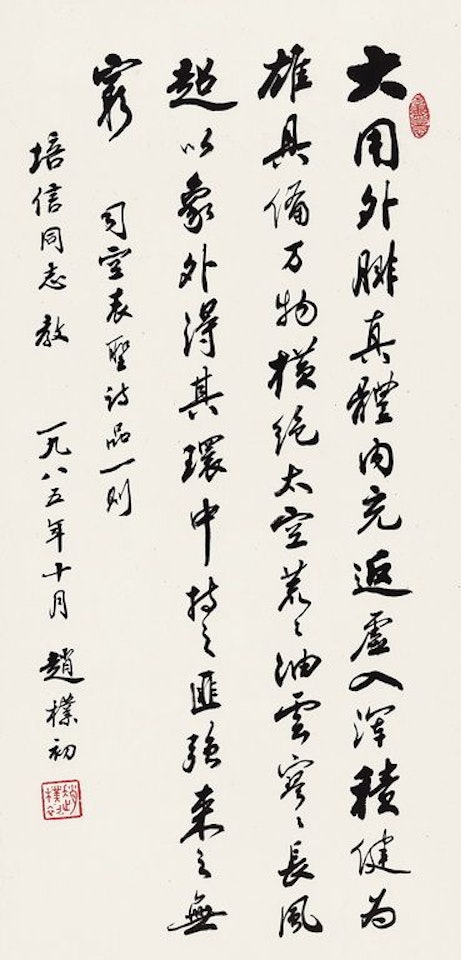 大用外腓真體内充返虚入渾積健为
雄具備万物横绝太空荒〻油雲寥〻長風
超以象外得其環中持之匪強来之無
窮
司空表聖诗品一则
培信同志教
一九八五年十月 趙樸初
趙樸初